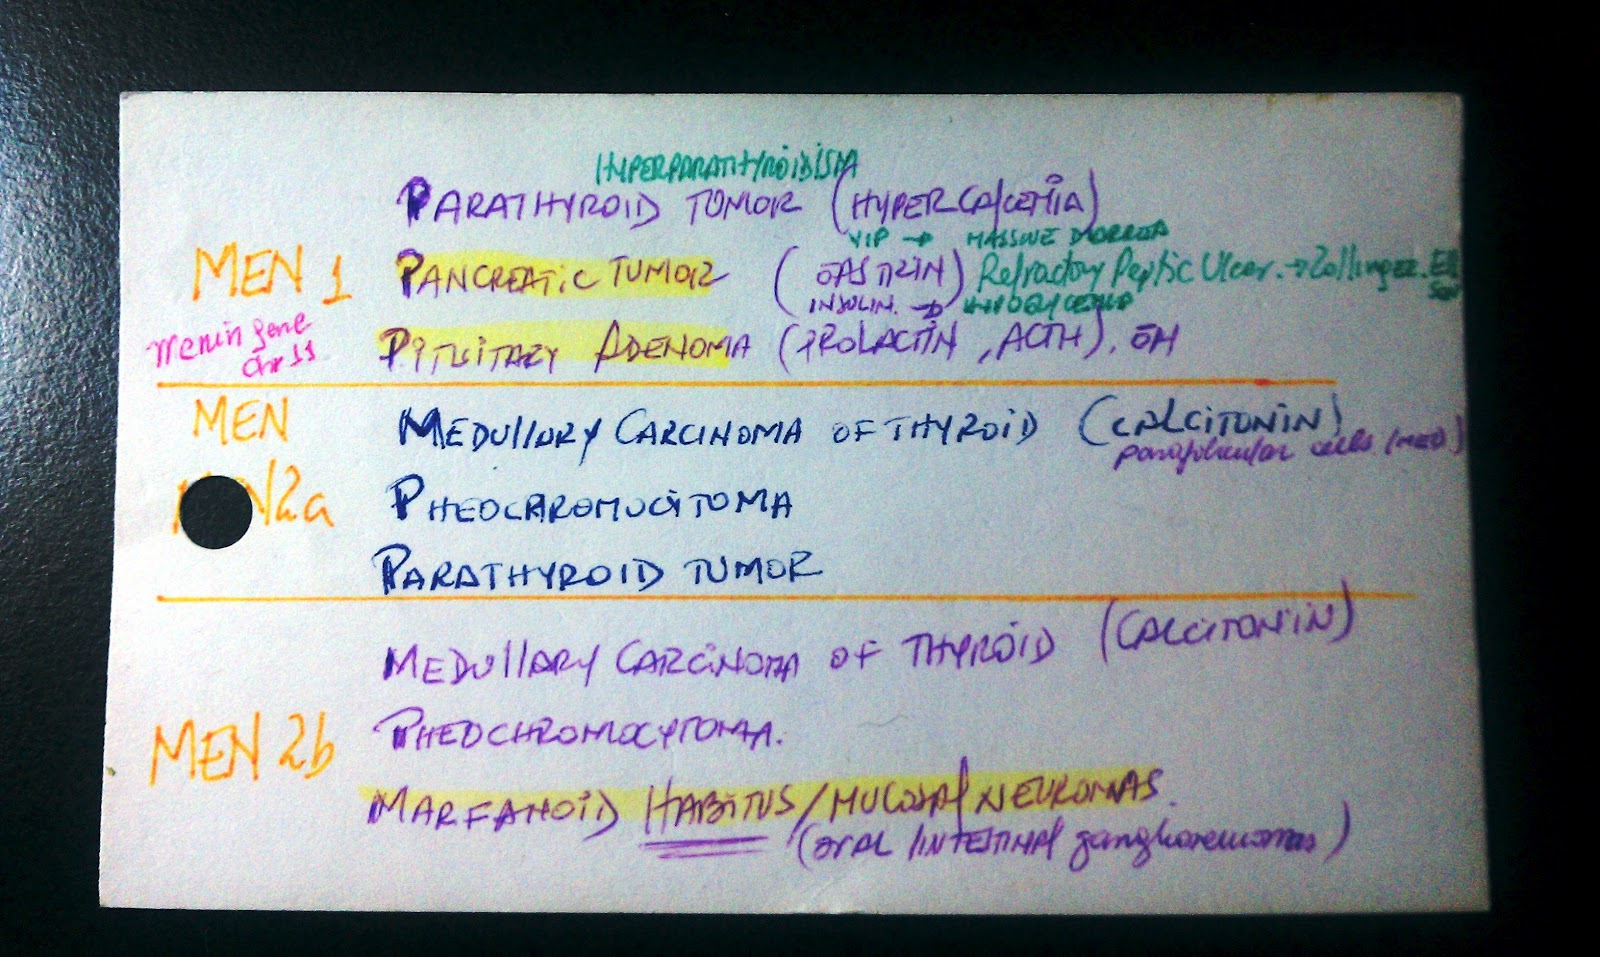 HYPERPARATHYROIDISM
PARATHYROID TUMOR (HYPERCALCEMIA)
VIP → MASSIVE
MEN 1 PANCREATIC TUMOR (GASTRIN) Refractory Peptic Ulcer. → Zollinger. Ell
INSULIN. → HYPOGLYCEMIA
Menin gene
chr 11
PITUITARY ADENOMA (PROLACTIN, ACTH), GH
MEN MEDULLARY CARCINOMA OF THYROID (CALCITONIN)
parafollicular cells (MED)
MEN2a PHEOCHROMOCITOMA
PARATHYROID TUMOR
MEDULLARY CARCINOMA OF THYROID (CALCITONIN)
MEN 2b PHEOCHROMOCYTOMA.
MARFANOID HABITUS/MUCOSAL NEUROMAS.
(ORAL/INTESTINAL ganglioneuromas)